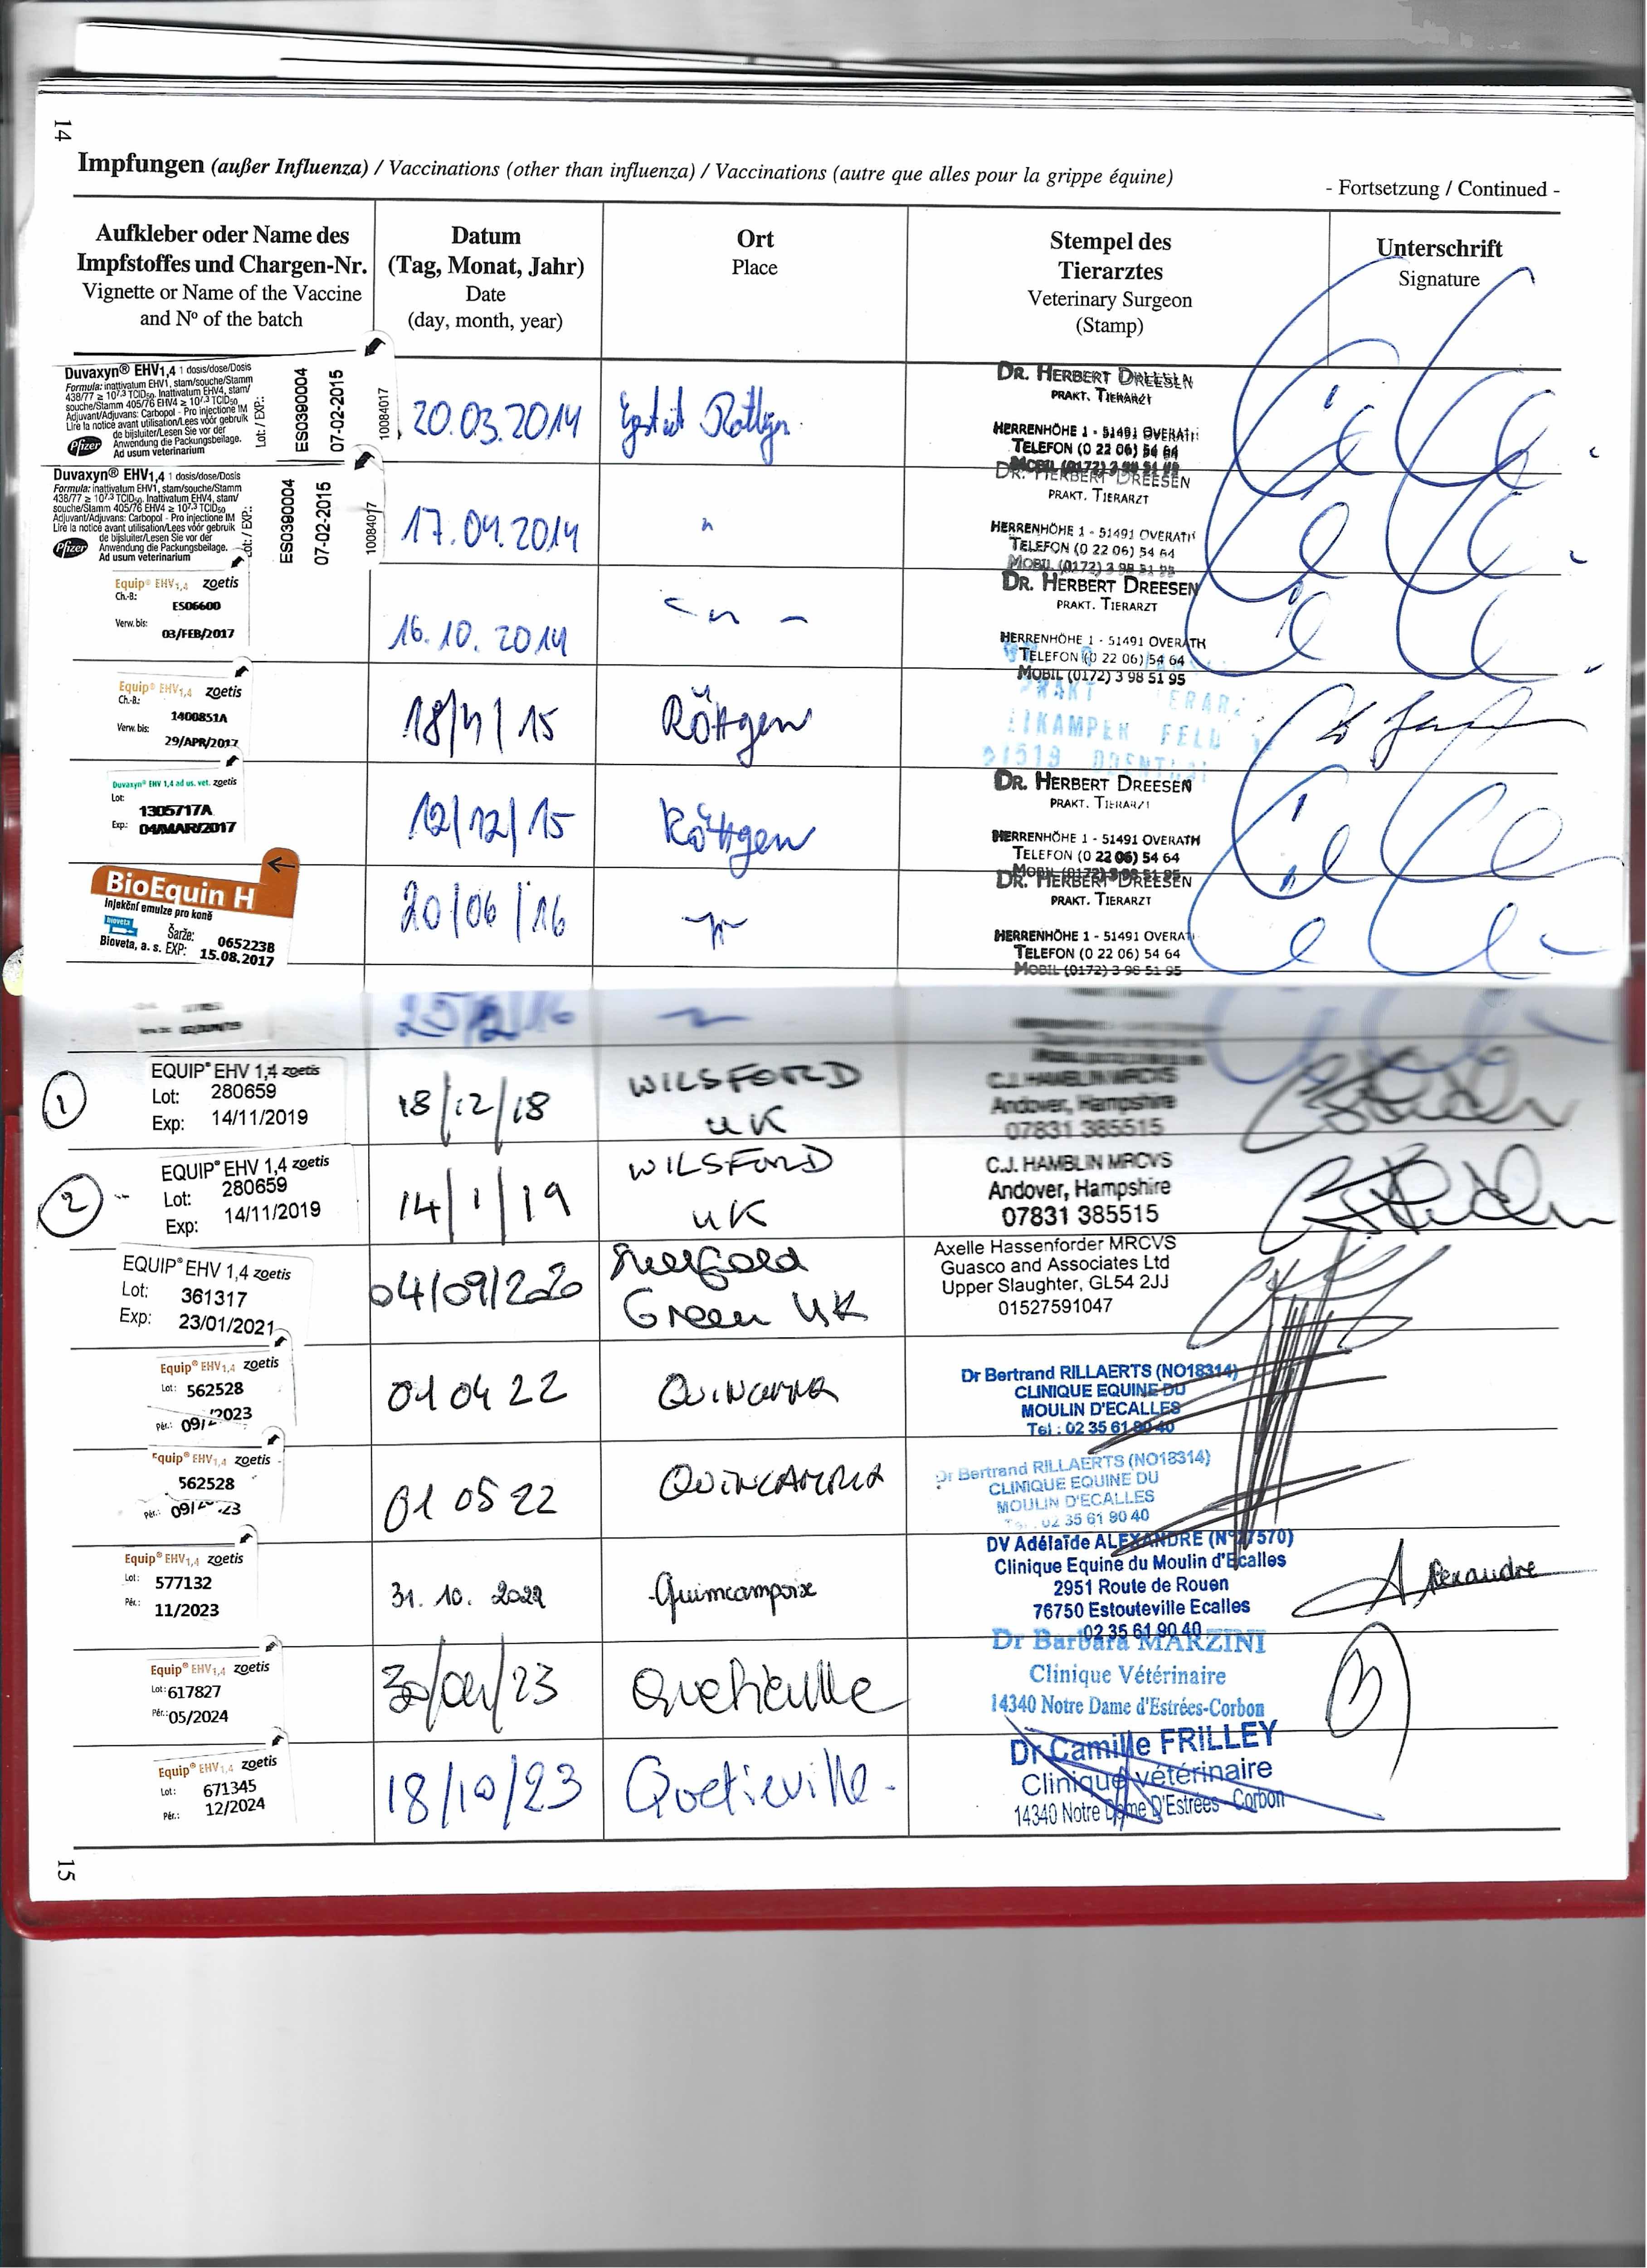 14
Impfungen (außer Influenza) / Vaccinations (other than influenza) / Vaccinations (autre que alles pour la grippe équine)
- Fortsetzung / Continued -
Aufkleber oder Name des
Impfstoffes und Chargen-Nr.
Vignette or Name of the Vaccine
and Nº of the batch
Datum
(Tag, Monat, Jahr)
Date
(day, month, year)
Ort
Place
Stempel des
Tierarztes
Veterinary Surgeon
(Stamp)
Unterschrift
Signature
Duvaxyn® EHV1,4 1 dosis/dose/Dosis
Formula: inattivatum EHV1, stam/souche/Stamm
438/77 ≥ 10^7,3 TCID50. Inattivatum EHV4, stam/
souche/Stamm 405/76 EHV4 ≥ 10^7,3 TCID50
Adjuvant/Adjuvans: Carbopol - Pro injectione IM
Lire la notice avant utilisation/Lees vóór gebruik
de bijsluiter/Lesen Sie vor der
Anwendung die Packungsbeilage.
Ad usum veterinarium
Pfizer
Lot: / EXP.:
ES0390004
07-02-2015
10084017
20.03.2014
Röttgen
DR. HERBERT DREESEN
PRAKT. TIERARZT
HERRENHÖHE 1 - 51491 OVERATH
TELEFON (0 22 06) 54 64
MOBIL (0172) 3 98 51 95
Duvaxyn® EHV1,4 1 dosis/dose/Dosis
Formula: inattivatum EHV1, stam/souche/Stamm
438/77 ≥ 10^7,3 TCID50. Inattivatum EHV4, stam/
souche/Stamm 405/76 EHV4 ≥ 10^7,3 TCID50
Adjuvant/Adjuvans: Carbopol - Pro injectione IM
Lire la notice avant utilisation/Lees vóór gebruik
de bijsluiter/Lesen Sie vor der
Anwendung die Packungsbeilage.
Ad usum veterinarium
Pfizer
Lot: / EXP.:
ES0390004
07-02-2015
10084017
17.04.2014
"
DR. HERBERT DREESEN
PRAKT. TIERARZT
HERRENHÖHE 1 - 51491 OVERATH
TELEFON (0 22 06) 54 64
MOBIL (0172) 3 98 51 95
Equip® EHV1,4 zoetis
Ch.-B:
ES06600
Verw. bis:
03/FEB/2017
16.10.2014
- " -
DR. HERBERT DREESEN
PRAKT. TIERARZT
HERRENHÖHE 1 - 51491 OVERATH
TELEFON (0 22 06) 54 64
MOBIL (0172) 3 98 51 95
Equip® EHV1,4 zoetis
Ch.-B:
1400851A
Verw. bis:
29/APR/2017
18/4/15
Röttgen
PRAKT
FELD
Duvaxyn® EHV 1,4 ad us. vet. zoetis
Lot:
1305717A
Exp.: 04/MAR/2017
12/12/15
Röttgen
DR. HERBERT DREESEN
PRAKT. TIERARZT
HERRENHÖHE 1 - 51491 OVERATH
TELEFON (0 22 06) 54 64
MOBIL (0172) 3 98 51 95
BioEquin H
injekční emulze pro koně
bioveta
Šarže: 065223B
Bioveta, a. s. EXP: 15.08.2017
20/06/16
DR. HERBERT DREESEN
PRAKT. TIERARZT
HERRENHÖHE 1 - 51491 OVERATH
TELEFON (0 22 06) 54 64
MOBIL (0172) 3 98 51 95
1
EQUIP® EHV 1,4 zoetis
Lot: 280659
Exp: 14/11/2019
18/12/18
WILSFORD
UK
C.J. HAMBLIN MRCVS
Andover, Hampshire
07831 385515
2
EQUIP® EHV 1,4 zoetis
Lot: 280659
Exp: 14/11/2019
14/1/19
WILSFORD
UK
C.J. HAMBLIN MRCVS
Andover, Hampshire
07831 385515
EQUIP® EHV 1,4 zoetis
Lot: 361317
Exp: 23/01/2021
04/09/2020
Green UK
Axelle Hassenforder MRCVS
Guasco and Associates Ltd
Upper Slaughter, GL54 2JJ
01527591047
Equip® EHV1,4 zoetis
Lot: 562528
Pér.: 09/2023
01 04 22
Dr Bertrand RILLAERTS (NO18314)
CLINIQUE EQUINE DU
MOULIN D'ECALLES
Tel : 02 35 61 90 40
Equip® EHV1,4 zoetis
562528
Pér.:
01 05 22
Dr Bertrand RILLAERTS (NO18314)
CLINIQUE EQUINE DU
MOULIN D'ECALLES
Tel : 02 35 61 90 40
Equip® EHV1,4 zoetis
Lot: 577132
Pér.: 11/2023
31. 10. 2022
Quincampoix
DV Adélaïde ALEXANDRE (N°27570)
Clinique Equine du Moulin d'Ecalles
2951 Route de Rouen
76750 Estouteville Ecalles
02 35 61 90 40
Alexandre
Equip® EHV1,4 zoetis
Lot: 617827
Pér.: 05/2024
30/04/23
Quetieville
Dr Barbara MARZINI
Clinique Vétérinaire
14340 Notre Dame d'Estrées-Corbon
Equip® EHV1,4 zoetis
Lot: 671345
Pér.: 12/2024
18/10/23
Quetieville
Dr Camille FRILLEY
Clinique vétérinaire
14340 Notre Dame D'Estrées-Corbon
15